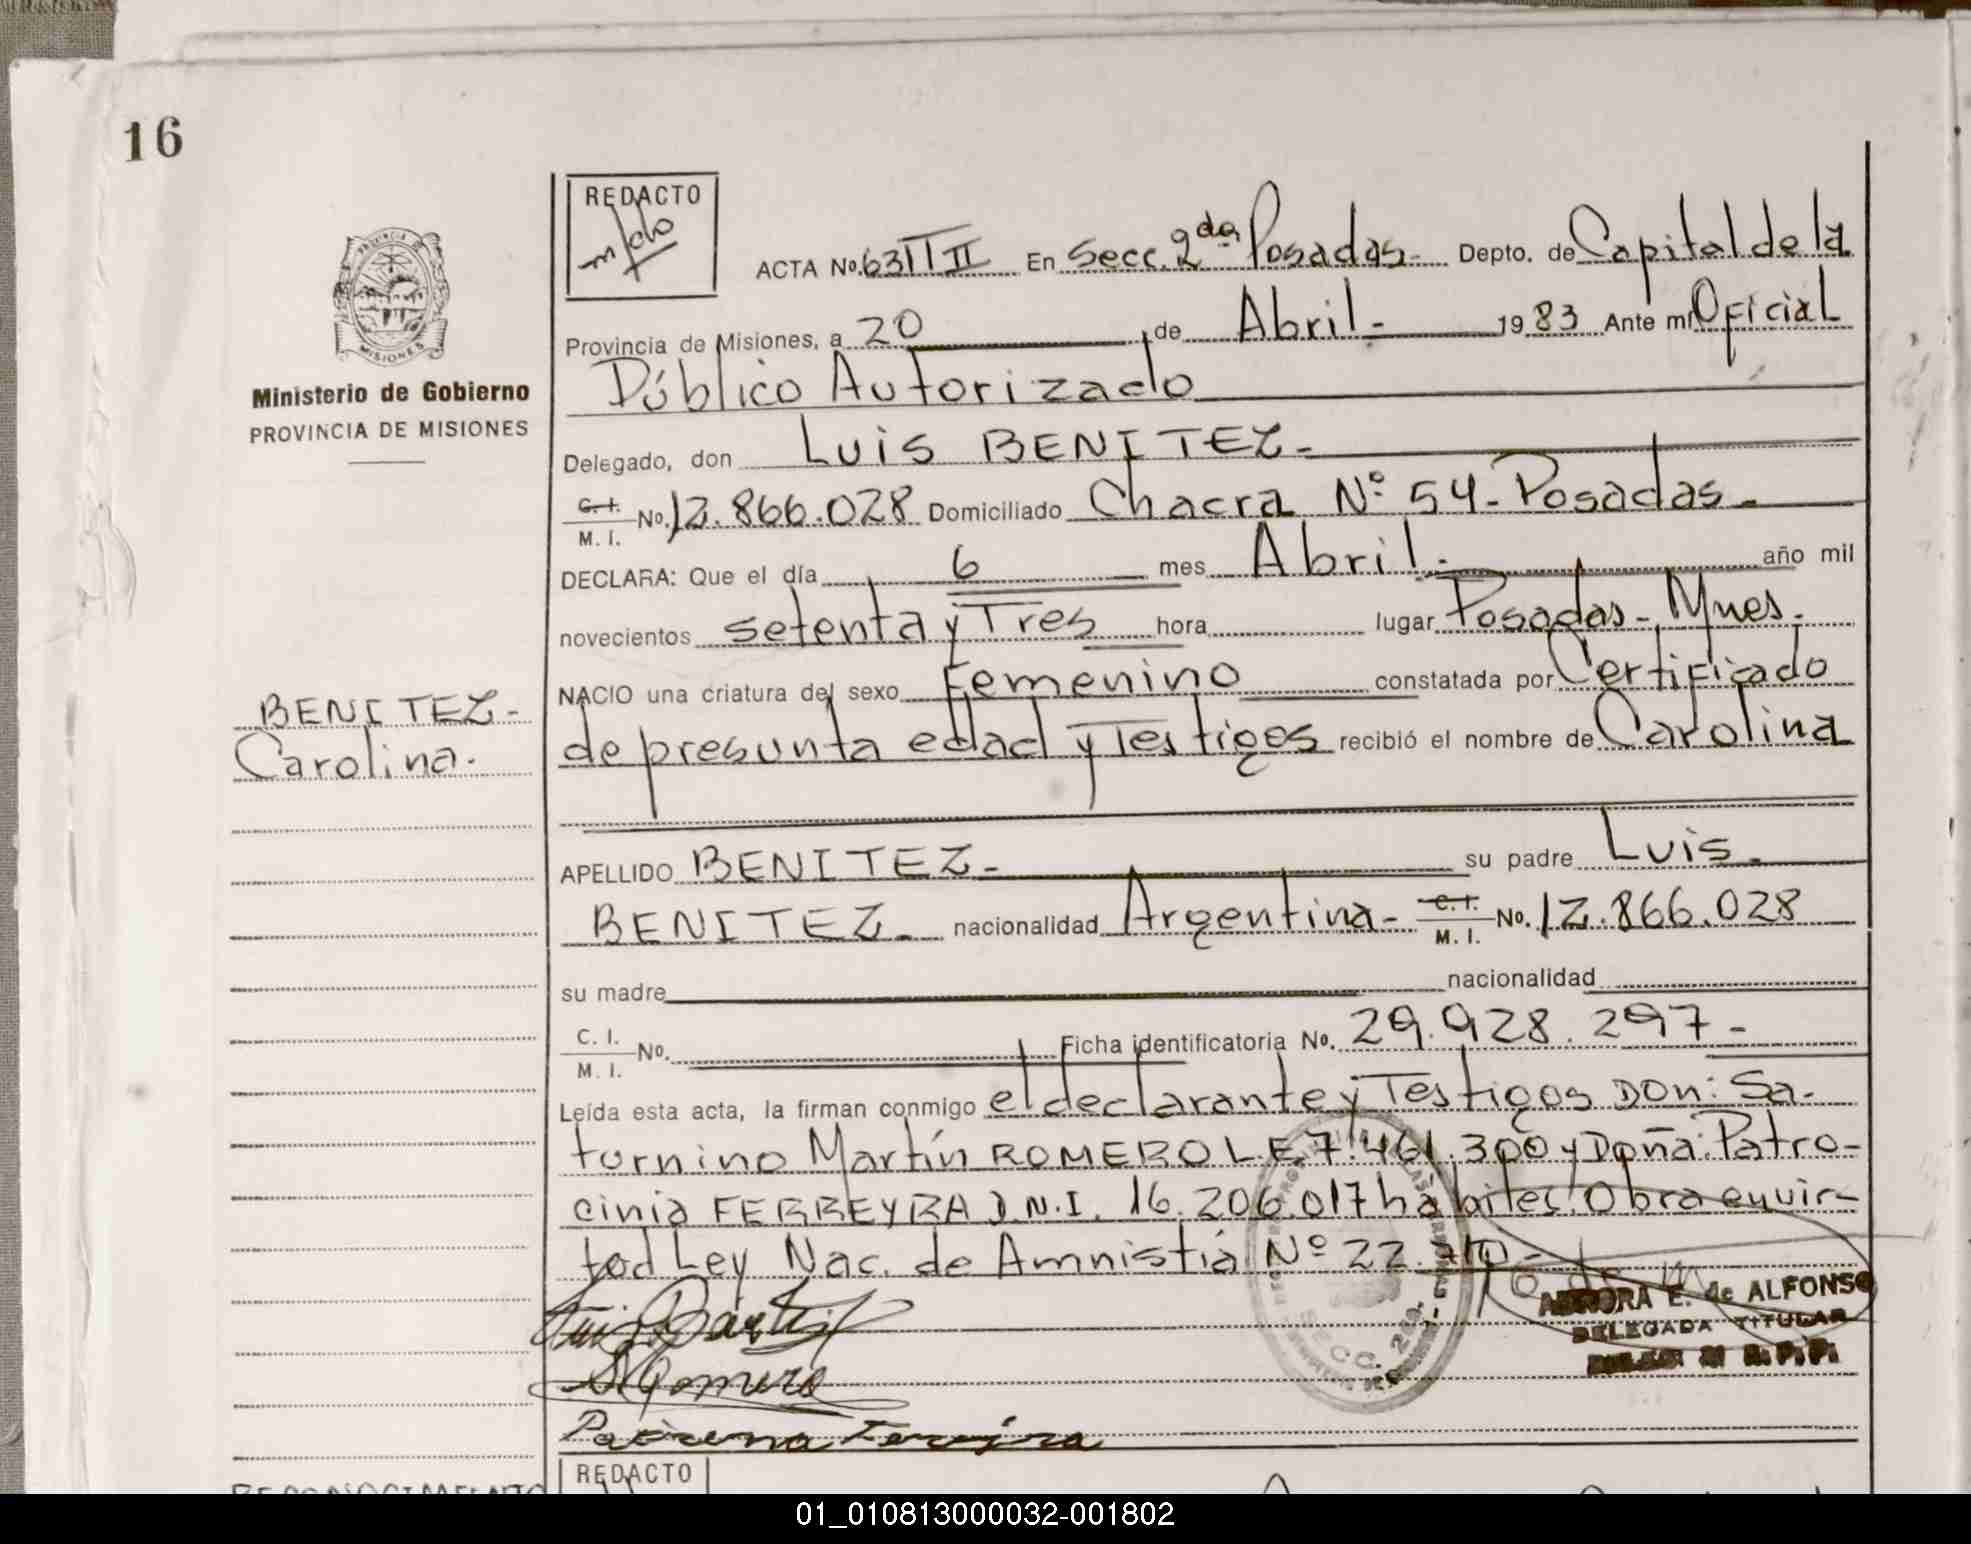 16
REDACTO
ACTA No. 63 T II En Secc. 2da. Posadas- Depto. de Capital de la
Provincia de Misiones, a 20 de Abril- 1983 Ante mi Oficial
Público Autorizado
PROVINCIA DE
MISIONES
Ministerio de Gobierno
PROVINCIA DE MISIONES
Delegado, don Luis BENITEZ-
C.I. M.I. No. 12.866.028 Domiciliado Chacra Nº 54-Posadas-
DECLARA: Que el día 6 mes Abril- año mil
novecientos setenta y Tres hora lugar Posadas-Mnes.
NACIO una criatura del sexo Femenino constatada por Certificado
BENITEZ-
Carolina.
de presunta edad y Testigos recibió el nombre de Carolina
APELLIDO BENITEZ- su padre Luis-
BENITEZ- nacionalidad Argentina- C.I. M.I. No. 12.866.028
su madre nacionalidad
C.I. M.I. No. Ficha identificatoria No. 29.928.297-
Leída esta acta, la firman conmigo el declarante y Testigos DON: Sa-
turnino Martín ROMERO L.E. 7.461.300 y Doña: Patro-
cinia FERREYRA D.N.I. 16.206.017 hábiles. Obra en vir-
tud Ley Nac. de Amnistia Nº 22.
SECC. 2da.
E. de ALFONSO
DELEGADA TITULAR
R. P. P.
Romero
Ferreira
REDACTO
RECONOCIMIENTO
01_010813000032-001802